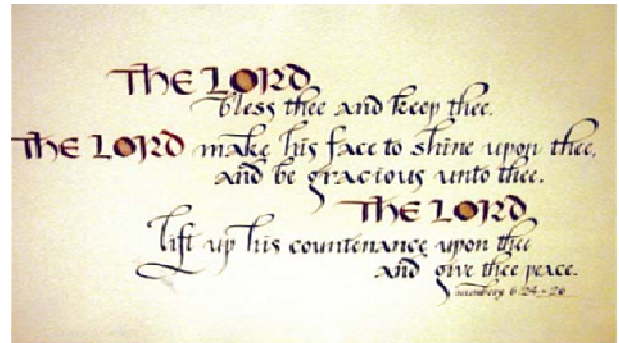 THE LORD
bless thee and keep thee.
THE LORD make his face to shine upon thee,
and be gracious unto thee.
THE LORD
lift up his countenance upon thee
and give thee peace.
numbers 6:24-26